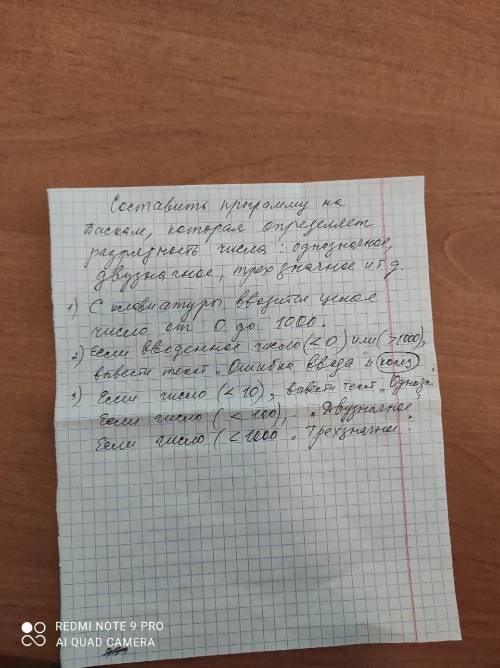 Составить программу на
Паскале, которая определяет
разрядность числа: однозначное,
двузначное, трехзначное и т.д.
1) С клавиатуры вводится целое
число от 0 до 1000.
2) Если введенное число (<0) или (>1000),
вывести текст „Ошибка ввода" и
3) Если число (<10), вывести текст „Однозн.
Если число (<100), „Двузначное
Если число (<1000 „Трехзначное".
REDMI NOTE 9 PRO
AI QUAD CAMERA